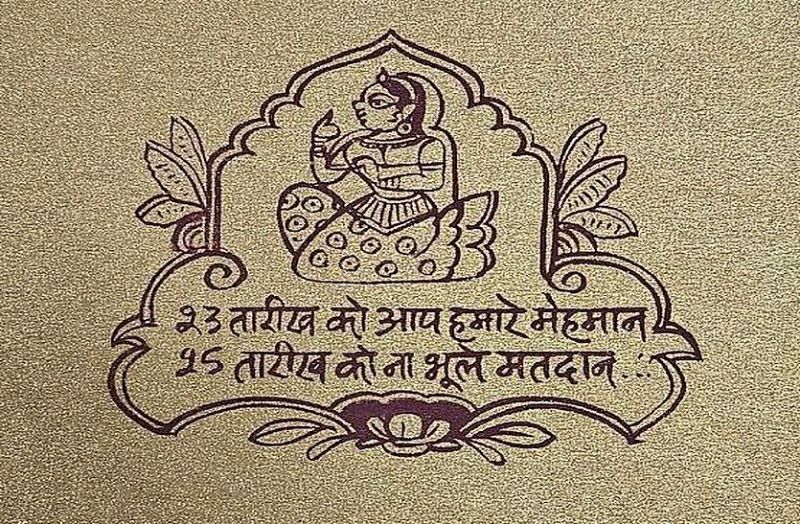 23 तारीख को आप हमारे मेहमान
25 तारीख को ना भूले मतदान...